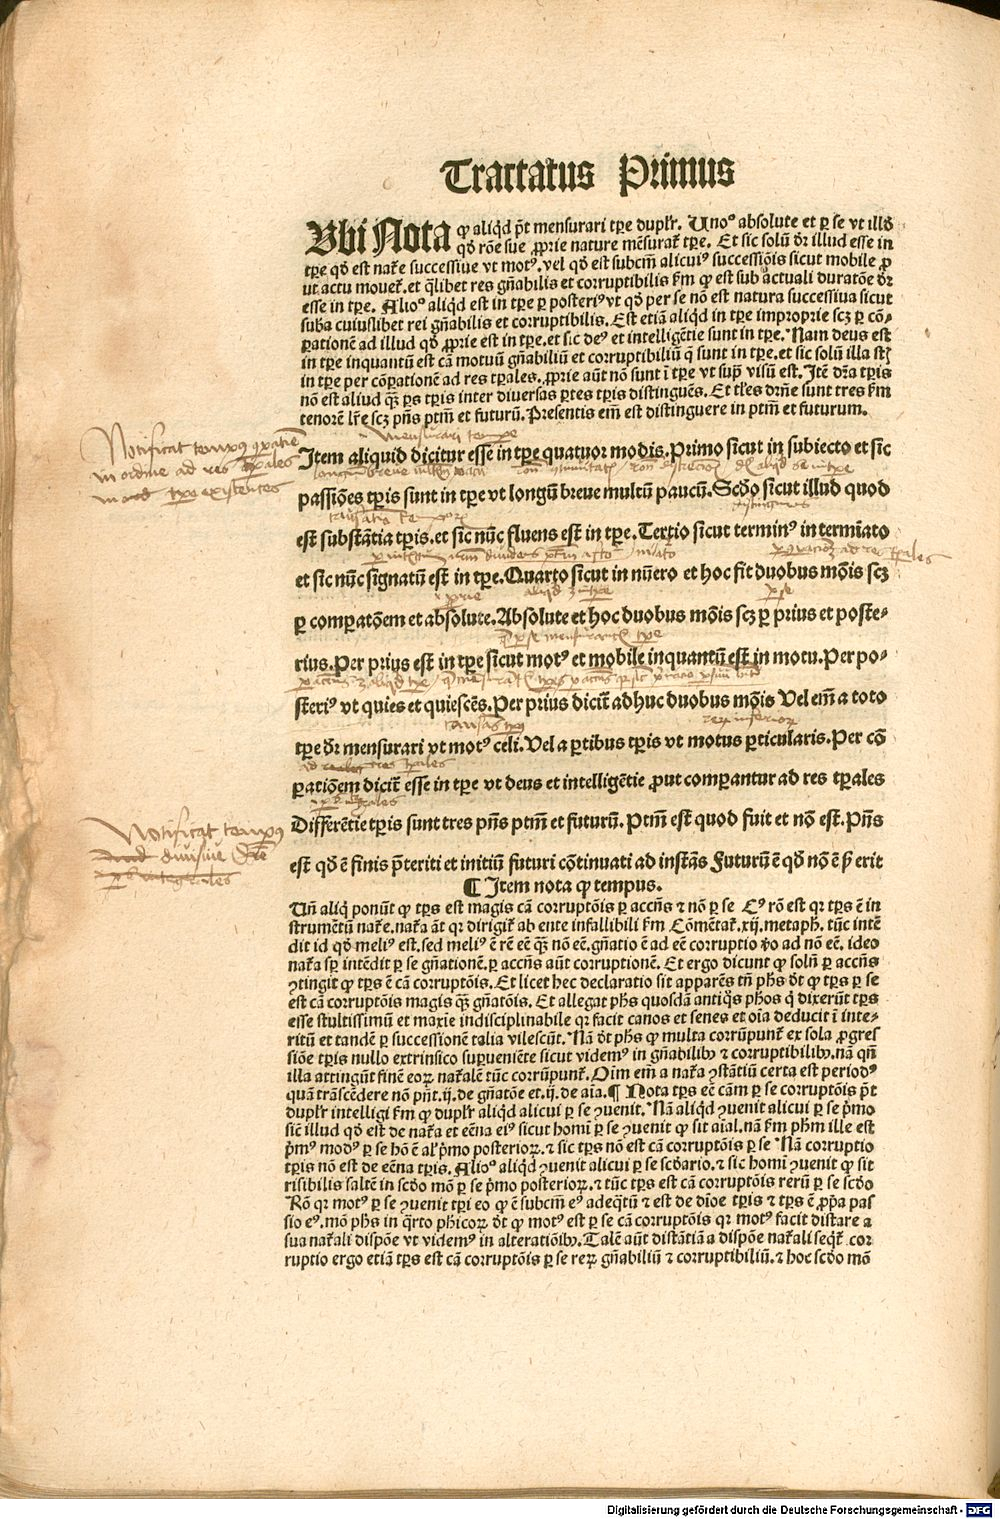 Tractatus Primus
Ubi Nota ꝙ aliqd p̄t mensurari tꝑe duplr̄. Unoꝰ absolute et ꝑ se vt illđ
qđ rōe sue ꝓprie nature mēsurat̄ tꝑe. Et sic solū dr̄ illud esse in
tꝑe qđ est nat̄e successiue vt motꝰ. vel qđ est subcm̄ alicuiꝰ successiōis sicut mobile ꝓ
ut actu mouet̄. et q̄libet res gn̄abilis et corruptibilis fm̄ ꝙ est sub actuali duratōe dr̄
esse in tꝑe. Alioꝰ aliqd est in tꝑe ꝑ posteriꝰ vt qđ per se nō est natura successiua sicut
suba cuiuslibet rei gn̄abilis et corruptibilis. Est etiā aliqd in tꝑe improprie scꝫ ꝑ cō⸗
ꝑationē ad illud qđ ꝓprie est in tꝑe. et sic deꝰ et intelligētie sunt in tꝑe. Nam deus est
in tꝑe inquantū est cā motuū gn̄abiliū et corruptibiliū q̄ sunt in tꝑe. et sic solū illa
in tꝑe per cōꝑationē ad res tꝑales. ꝓprie aūt nō sunt ī tꝑe vt supͣ visū est. Itē dr̄a tꝑis
nō est aliud qꝫ ꝑs tꝑis inter diuersas ꝑtes tꝑis distinguēs. Et tles dr̄ne sunt tres fm̄
tenorē lr̄e scꝫ pn̄s ptm̄ et futurū. Presentis em̄ est distinguere in ptm̄ et futurum.
mensurari tempe
Notificat tempꝰ
in ordine ad res tꝑales
existentes
Item aliquid dicitur esse in tꝑe quatuor modis. Primo sicut in subiecto et sic
passiões tꝑis sunt in tꝑe vt longū breue multū paucū. Scđo sicut illud quod
est substātia tꝑis. et sic nūc fluens est in tꝑe. Tertio sicut terminꝰ in termīato
et sic nūc signatū est in tꝑe. Quarto sicut in nūero et hoc fit duobus mōis scꝫ
ꝑ comꝑatōem et absolute. Absolute et hoc duobus mōis scꝫ ꝑ prius et poste⸗
rius. Per prius est in tꝑe sicut motꝰ et mobile inquantū est in motu. Per po⸗
steriꝰ vt quies et quiescēs. Per prius dicit̄ adhuc duobus mōis Vel em̄ a toto
tꝑe dr̄ mensurari vt motꝰ celi. Vel a ꝑtibus tꝑis vt motus ꝑticularis. Per cō
ꝑatiōem dicit̄ esse in tꝑe vt deus et intelligētie ꝓut comꝑantur ad res tꝑales
Notificat tempus
diuisiue
Differētie tꝑis sunt tres pn̄s ptm̄ et futurū. Ptm̄ est quod fuit et nō est. Pn̄s
est qđ ē finis p̄teriti et initiū futuri cōtinuati ad instās Futurū ē qđ nō ē ꝫ erit
¶ Item nota ꝙ tempus.
Un̄ aliq̇ ponūt ꝙ tꝑs est magis cā corruptōis ꝑ accn̄s ⁊ nō ꝑ se Cꝰ rō est qr tꝑs ē in
strumētū nat̄e. nat̄a āt qr dirigit̄ ab ente infallibili fm̄ Cōmētat̄. xij. metaph. tūc intē
dit id qđ meliꝰ est. sed meliꝰ ē rē eē qꝫ nō eē. gn̄atio ē ad eē corruptio v̄o ad nō eē. ideo
nat̄a sꝑ intēdit ꝑ se gn̄ationē. ꝑ accn̄s aūt corruptionē. Et ergo dicunt ꝙ solū ꝑ accn̄s
ꝯtingit ꝙ tꝑs ē cā corruptōis. Et licet hec declaratio sit apparēs tn̄ ph̄s dt ꝙ tꝑs ꝑ se
est cā corruptōis magis qꝫ gn̄atōis. Et allegat ph̄s quosdā antiq̄s ph̄os q̇ dixerūt tꝑs
esse stultissimū et maxīe indisciplinabile qr facit canos et senes et oīa deducit ī inte⸗
ritū et tandē ꝑ successionē talia vilescūt. Nā dt ph̄s ꝙ multa corrūpunt̄ ex sola ꝓgres
siōe tꝑis nullo extrinsico suꝑueniēte sicut videmꝰ in gn̄abilibꝫ ⁊ corruptibilibꝫ. nā qn̄
illa attingūt finē eoꝝ nat̄alē tūc corrūpunt̄. Oim em̄ a nat̄a ꝯstātiū certa est periodꝰ
quā trāscēdere nō pn̄t. ij. de gn̄atōe et. ij. de aīa. ¶ Nota tꝑs eē cām ꝑ se corruptōis p̄t
duplr̄ intelligi fm̄ ꝙ duplr̄ aliqd alicui ꝑ se ꝯuenit. Nā aliqd ꝯuenit alicui ꝑ se pͥmo
sic̄ illud qđ est de nat̄a et eēna eiꝰ sicut homī ꝑ se ꝯuenit ꝙ sit aīal. nā fm̄ ph̄m ille est
pͥmꝰ modꝰ ꝑ se hō ē al pͥmo posterioꝝ. ⁊ sic tꝑs nō est cā corruptōis ꝑ se Nā corruptio
tꝑis nō est de eēna tꝑis. Alioꝰ aliqd ꝯuenit alicui ꝑ se scđario. ⁊ sic homī ꝯuenit ꝙ sit
risibilis saltē in scđo mō ꝑ se pͥmo posterioꝝ. ⁊ tūc tꝑs est cā corruptōis rerū ꝑ se scđo
Rō qr motꝰ ꝑ se ꝯuenit tꝑi eo ꝙ ē subcm̄ eꝰ adeq̄tū ⁊ est de dīoe tꝑis ⁊ tꝑs ē ꝓpa pas
sio eꝰ. mō ph̄s in q̄rto ph̄icoꝝ dt ꝙ motꝰ est ꝑ se cā corruptōis qr motꝰ facit distare a
sua nat̄ali dispōe vt videmꝰ in alteratiōibꝫ. Talē aūt distātiā a dispōe nat̄ali seqt̄ cor
ruptio ergo etiā tꝑs est cā corruptōis ꝑ se reꝝ gn̄abiliū ⁊ corruptibiliū. ⁊ hoc scđo mō
Digitalisierung gefördert durch die Deutsche Forschungsgemeinschaft - DFG